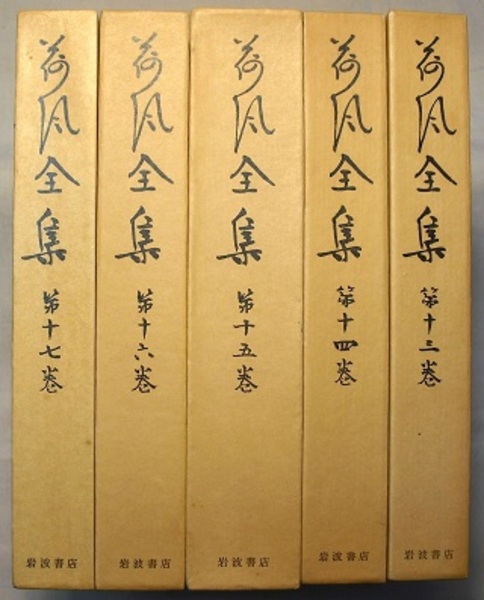 荷風全集 第十七巻 岩波書店
荷風全集 第十六巻 岩波書店
荷風全集 第十五巻 岩波書店
荷風全集 第十四巻 岩波書店
荷風全集 第十三巻 岩波書店